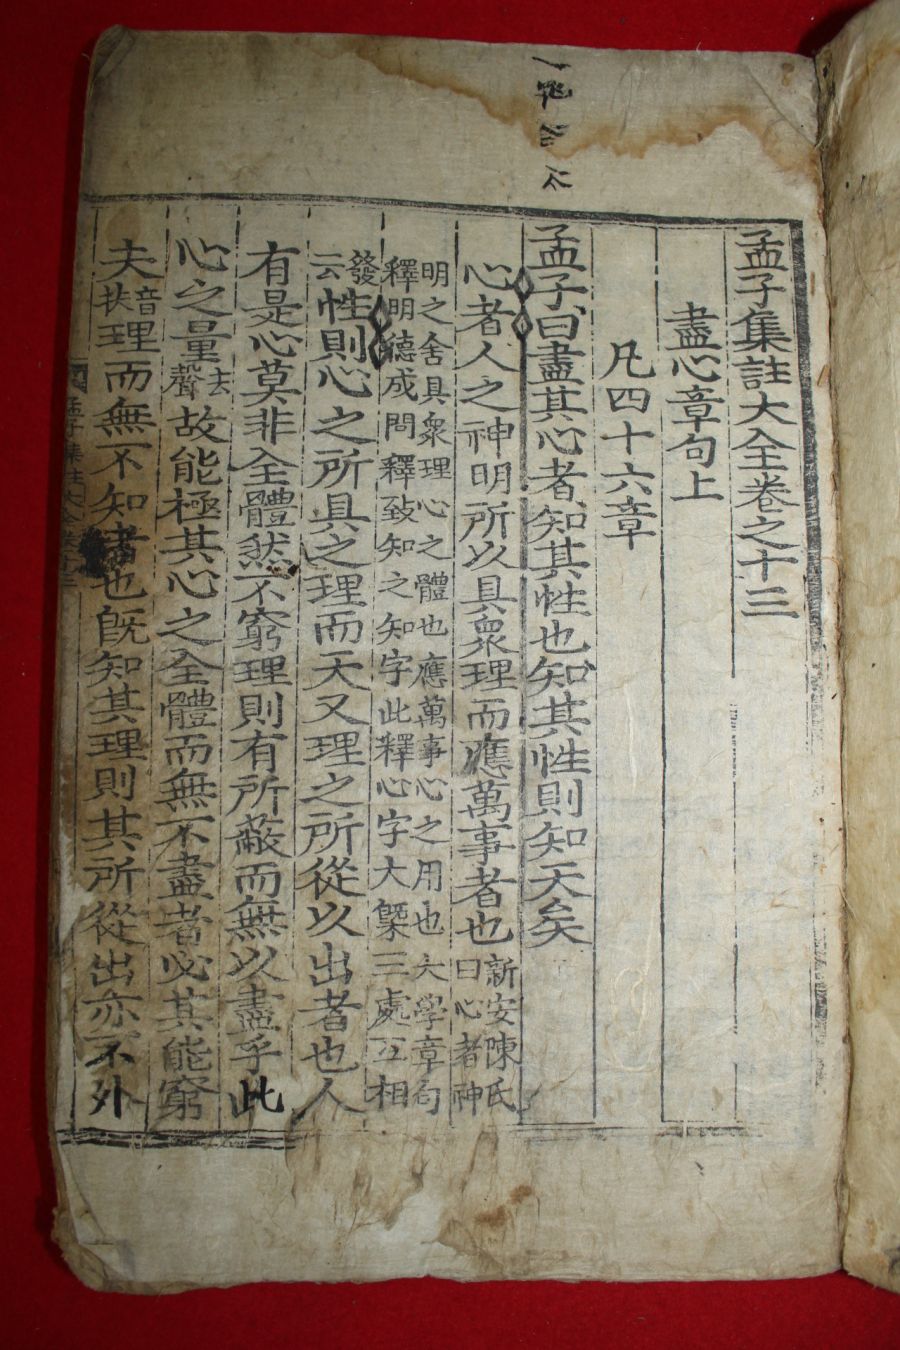 孟子集註大全卷之十三
盡心章句上
凡四十六章
孟子曰盡其心者知其性也知其性則知天矣
心者人之神明所以具衆理而應萬事者也新安陳氏曰心者神
明之舍具衆理心之體也應萬事心之用也大學章句
釋明德成問釋致知之知字此釋心字大槩三處互相
發云性則心之所具之理而天又理之所從以出者也人
有是心莫非全體然不窮理則有所蔽而無以盡乎此
心之量去聲故能極其心之全體而無不盡者必其能窮
夫音扶理而無不知者也旣知其理則其所從出亦不外